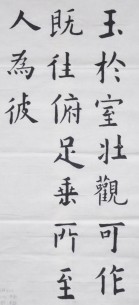 玉於室壯觀可作
既往俯足垂所至
人為彼